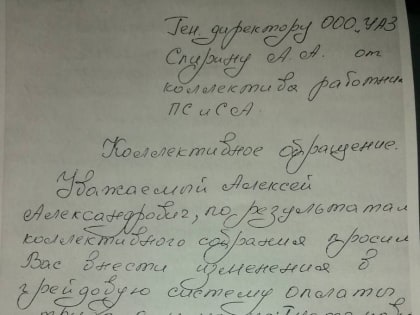 Ген. директору ООО„УАЗ
Спирину А.А. от
коллектива работник
ПС и СА.
Коллективное обращение.
Уважаемый Алексей
Александрович, по результатам
коллективного собрания просим
Вас внести изменения в
грейдовую систему оплаты